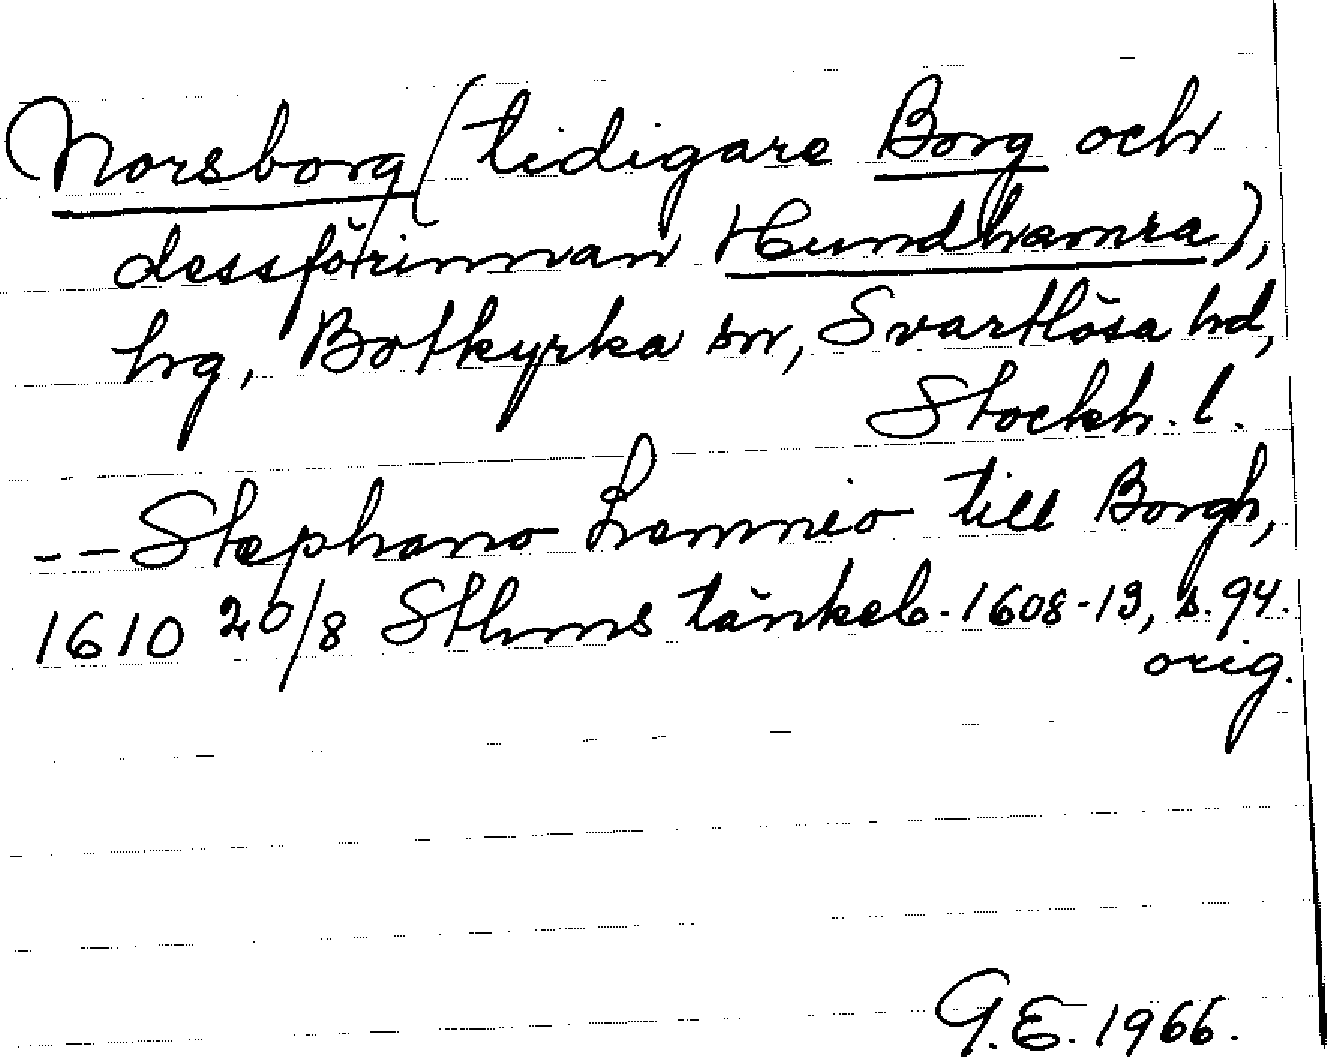 Norsborg (tidigare Borg och
dessförinnan Hundhamra),
hg, Botkyrka sn, Svartlösa hd,
Stockh. l.
-- Stephano Lemnio till Borgh,
1610 20/8 Sthms tänkeb. 1608-13, s. 94.
orig.
G.E. 1966.